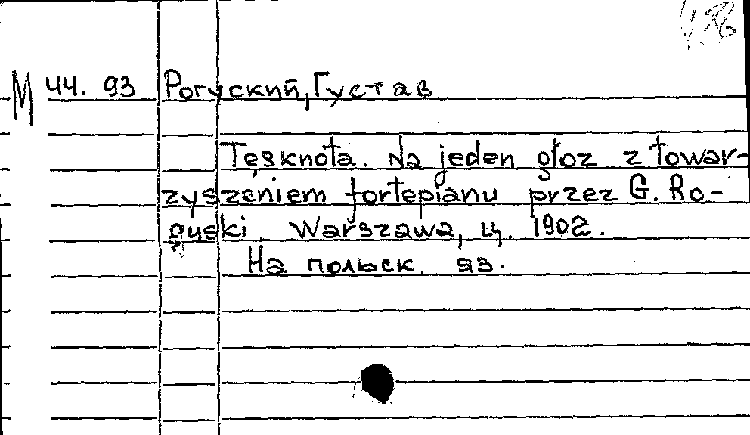 М 44. 93 Рогуский, Густав
Tęsknota. Na jeden głoz z towar-
zyszeniem fortepianu przez G. Ro-
guski. Warszawa, ц. 1902.
На польск. яз.